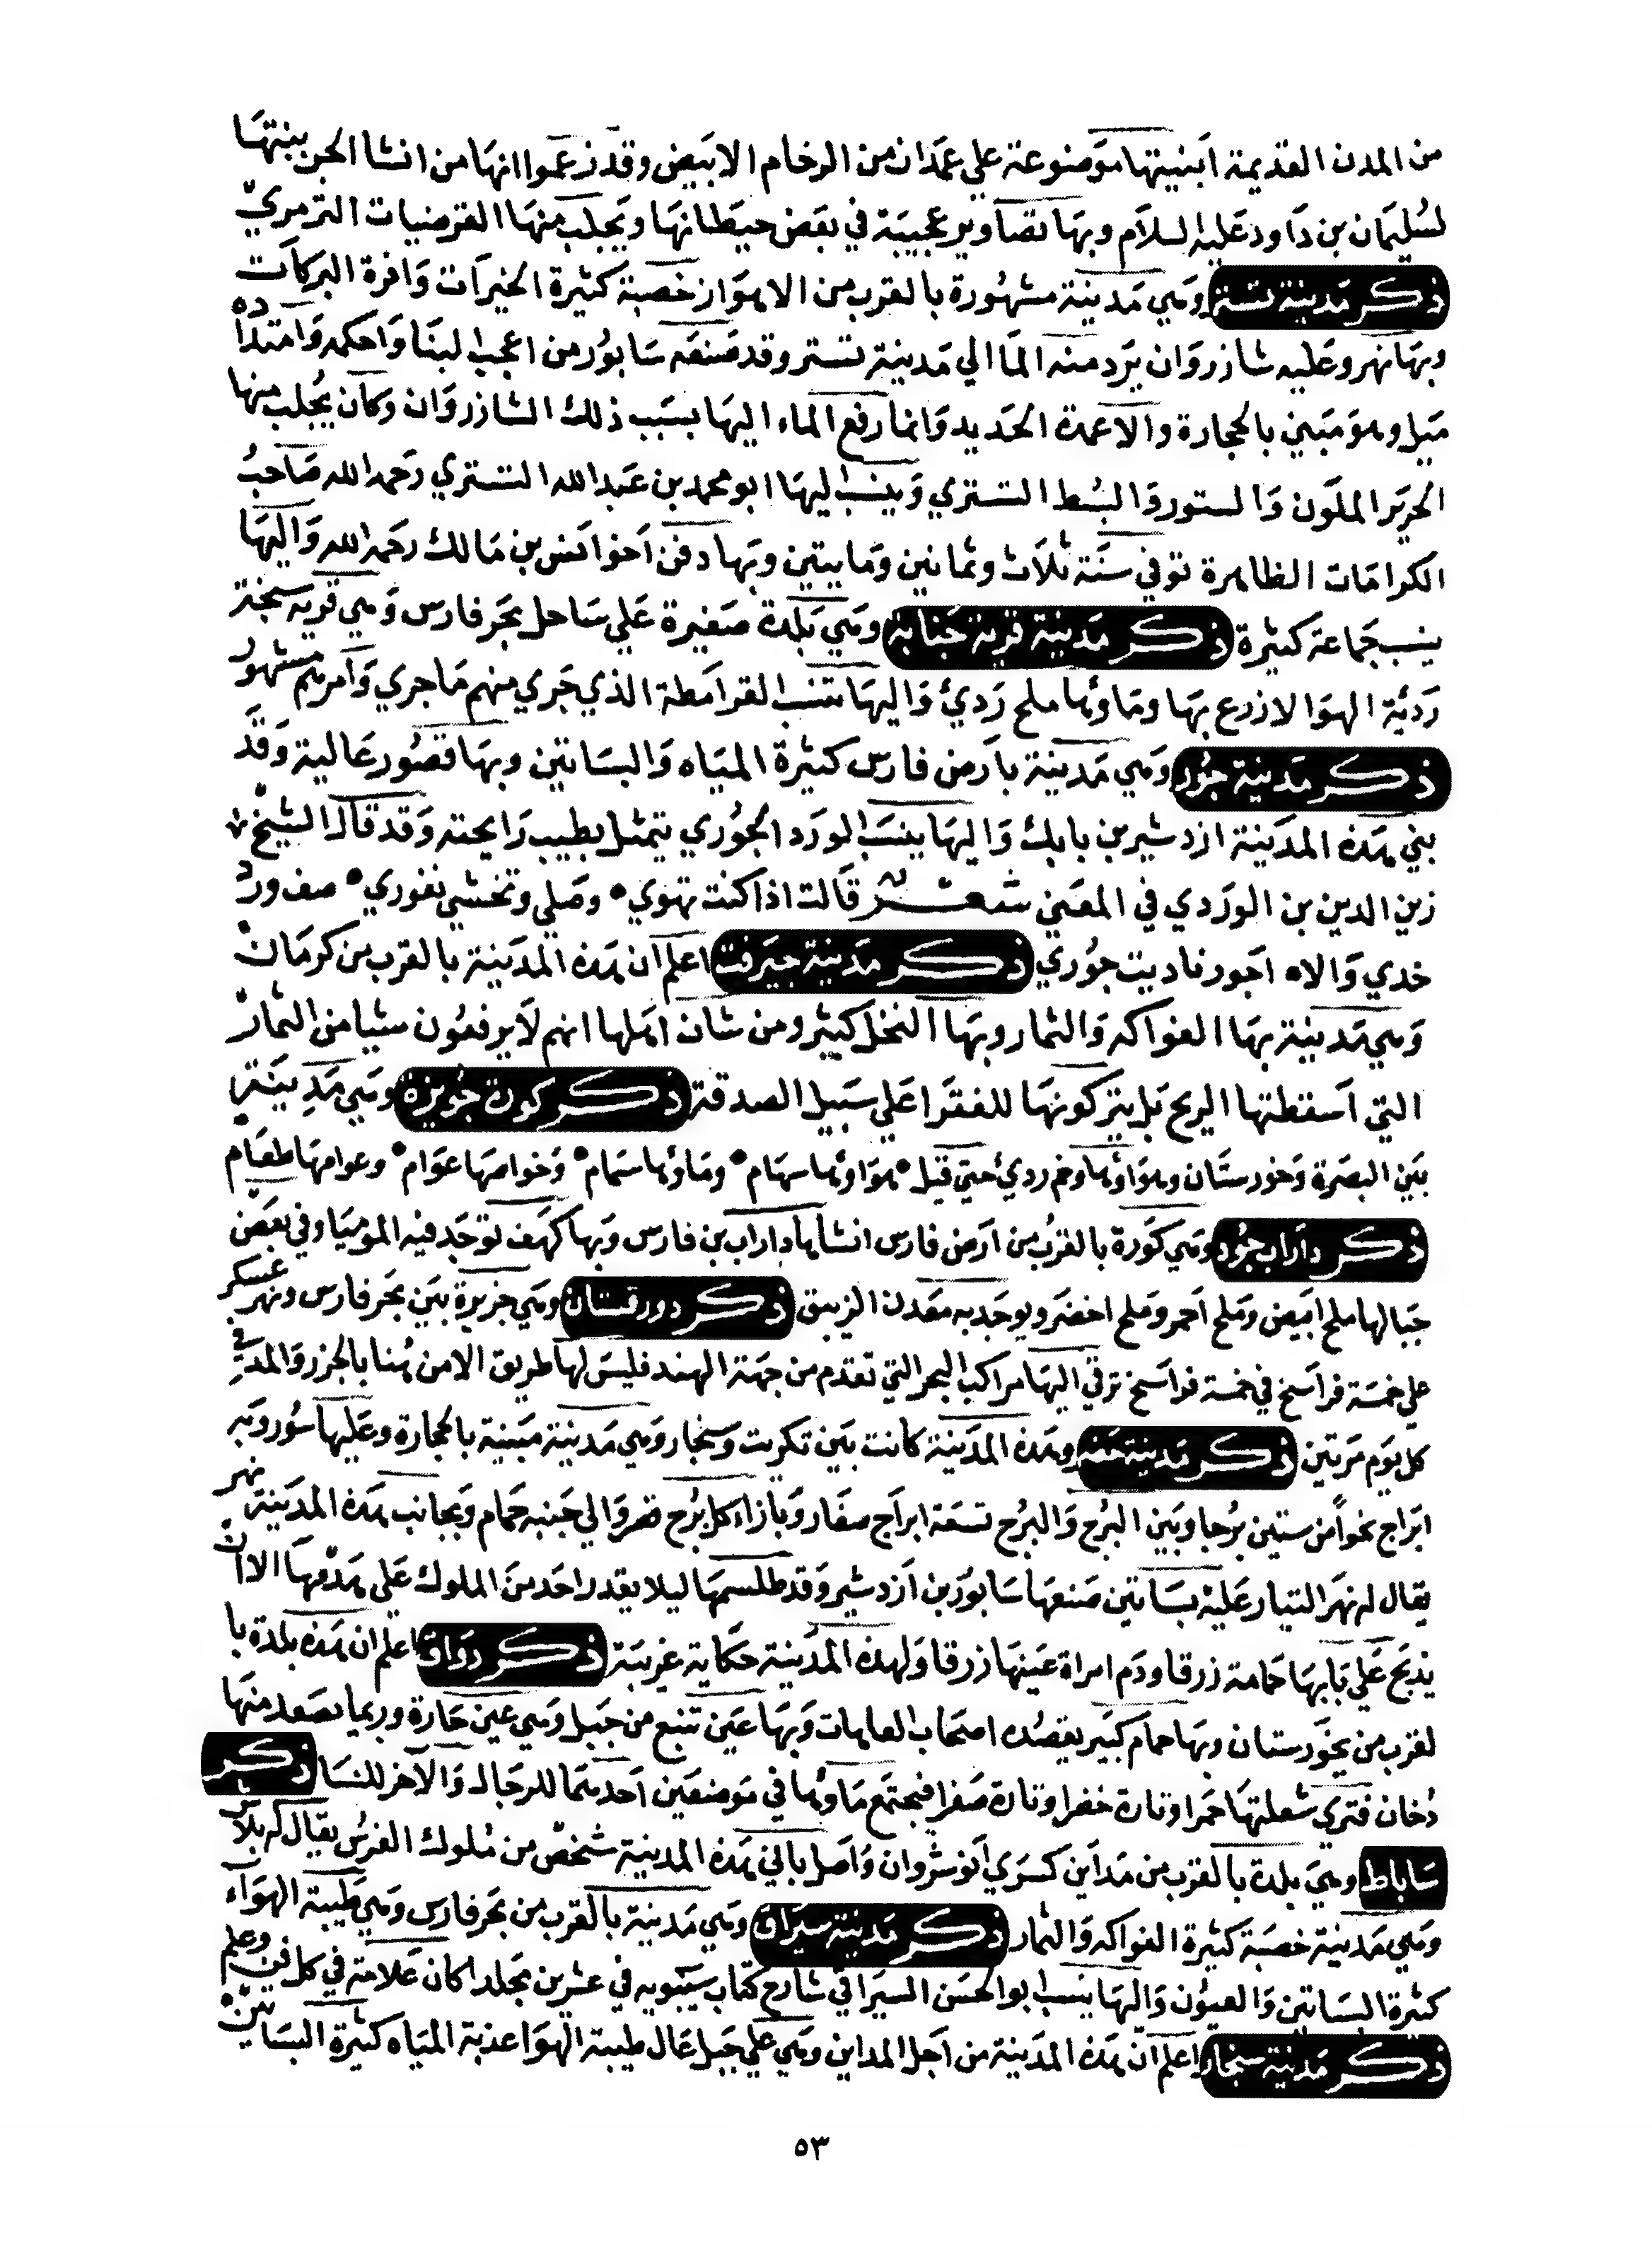 من المدن القديمة ابنيتها موضوعة علي عمدان من الرخام الابيض وقد زعموا انها من انشا الجن بنتها
لسليمان بن داود عليه السلام وبها تصاوير عجيبة في بعض حيطانها ويجلب منها القرضيات الترمري
ذكر مدينة تستر وهي مدينة مشهورة بالقرب من الاهواز خصبة كثيرة الخيرات وافرة البركات
وبها نهر وعليه شاذروان يرد منه الما الي مدينة تستر وقد صنعه سابور من اعجب البنا واحكمه وامتداده
ميل وهو مبني بالحجارة والاعمدة الحديد وانما رفع الماء اليها بسبب ذلك الشاذروان وكان يجلب منها
الحرير الملون والستور والبسط التستري وينسب اليها ابو محمد بن عبد الله التستري رحمه الله صاحب
الكرامات الظاهرة توفي سنة ثلاث وثمانين ومايتين وبها دفن اخو انس بن مالك رحمه الله واليها
ينسب جماعة كثيرة ذكر مدينة قرية جنابة وهي بلدة صغيرة علي ساحل بحر فارس وهي قرية سبخة
ردئة الهوا لا زرع بها وماؤها ملح ردئ واليها تنسب القرامطة الذي جري منهم ما جري وامرهم مشهور
ذكر مدينة جور وهي مدينة بارض فارس كثيرة المياه والبساتين وبها قصور عالية وقد
بني هذه المدينة ازدشير بن بابك واليها ينسب الورد الجوري يتمثل بطيب رايحته وقد قال الشيخ
زين الدين بن الوردي في المعني شعر قالت اذا كنت تهوي • وصلي وتخشي نفوري • صف ورد
خدي والاه اجور ناديت جوري ذكر مدينة جيرفت اعلم ان هذه المدينة بالقرب من كرمان
وهي مدينة بها الفواكه والثمار وبها النخل كثير ومن شان اهلها انهم لا يرفعون شيا من الثمار
التي اسقطتها الريح بل يتركونها للفقرا علي سبيل الصدقة ذكر كورة جويزة وهي مدينة
بين البصرة وخورستان وهواؤها وخم ردئ حتي قيل • هواؤها سهام • وماؤها سمام • وخواصها عوام • وعوامها طغام
ذكر داراب جرد وهي كورة بالقرب من ارض فارس انشاها داراب بن فارس وبها كهف توجد فيه الموميا وفي بعض
جبالها ملح ابيض وملح احمر وملح اخضر ويوجد به معدن الزيبق ذكر دورقستان وهي جزيرة بين بحر فارس ونهر عسكر
علي خمسة فراسخ في خمسة فراسخ ترقي اليها مراكب البحر التي تقدم من جهة الهند فليس لها طريق الا من هنا بالجزر والمد في
كل يوم مرتين ذكر مدينة وهذه المدينة كانت بين تكريت وسنجار وهي مدينة مبنية بالحجارة وعليها سور وبه
ابراج نحوا من ستين برجا وبين البرج والبرج تسعة ابراج صغار وبازاء كل برج قصر والي جنبه حمام وبجانب هذه المدينة نهر
يقال له نهر التيار عليه بساتين صنعها سابور بن ازدشير وقد طلسمها ليلا يقدر احد من الملوك علي هدمها الا ان
يذبح علي بابها حمامة زرقا ودم امراة عينها زرقا ولهذه المدينة حكاية غريبة ذكر دوان اعلم ان هذه بلدة با
لقرب من بخورستان وبها حمام كبير يقصده اصحاب العاهات وبها عين تنبع من جبل وهي عين حارة وربما يصعد منها
دخان فتري شعلتها حمرا وتارة خضرا وتارة صفرا فيجتمع ماؤها في موضعين احدهما للرجال والآخر للنسا ذكر
ساباط وهي بلدة بالقرب من مداين كسري انوشروان واصل باني هذه المدينة شخص من ملوك الفرس يقال له بلاس
وهي مدينة خصبة كثيرة الفواكه والثمار ذكر مدينة سيراف وهي مدينة بالقرب من بحر فارس وهي طيبة الهوآء
كثيرة البساتين والعيون واليها ينسب ابو الحسن السيرافي شارح كتاب سيبويه في عشرين مجلدا كان علامة في كل فن وعلم
ذكر مدينة سنجار اعلم ان هذه المدينة من اجل المداين وهي علي جبل عال طيبة الهوا عذبة المياه كثيرة البساتين
٥٣